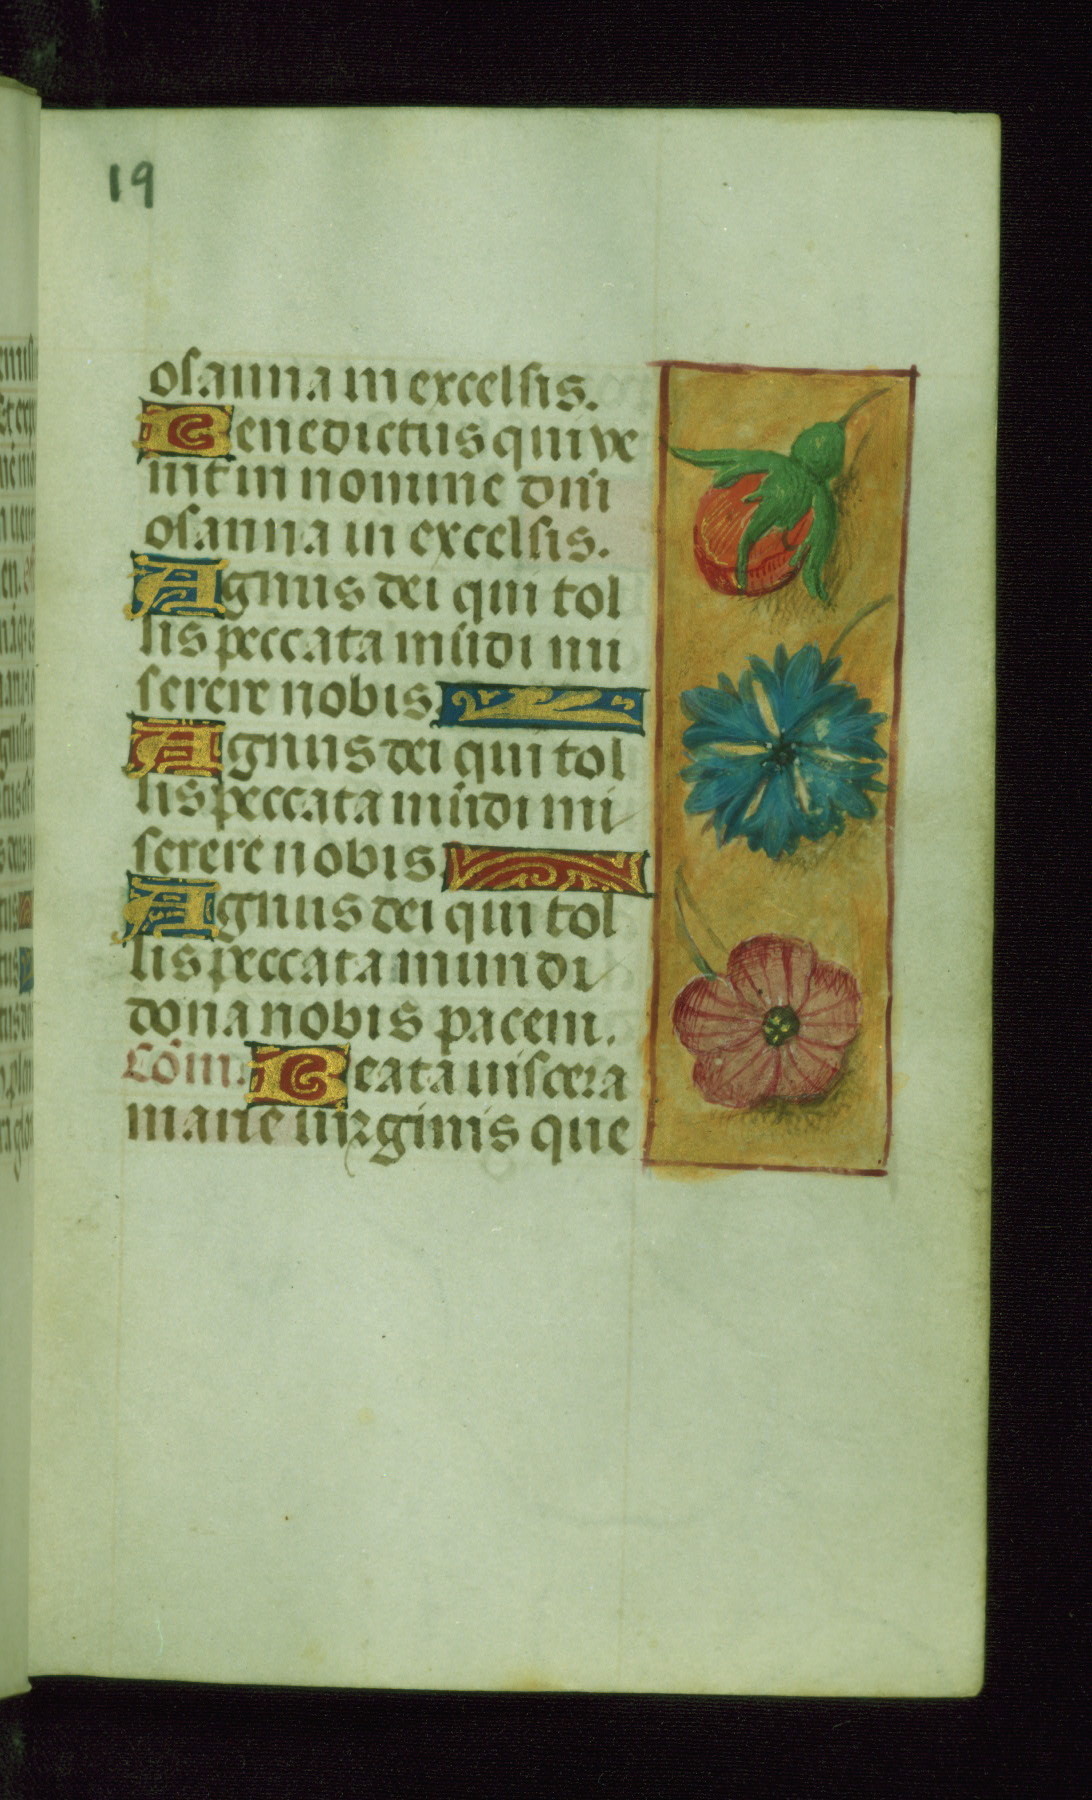 19
osanna in excelsis.
Benedictus qui ve
nit in nomine dn̄i
osanna in excelsis.
Agnus dei qui tol
lis peccata mūdi mi
serere nobis
Agnus dei qui tol
lis peccata mūdi mi
serere nobis
Agnus dei qui tol
lis peccata mundi
dona nobis pacem.
Cōm. Beata viscera
marie virginis que